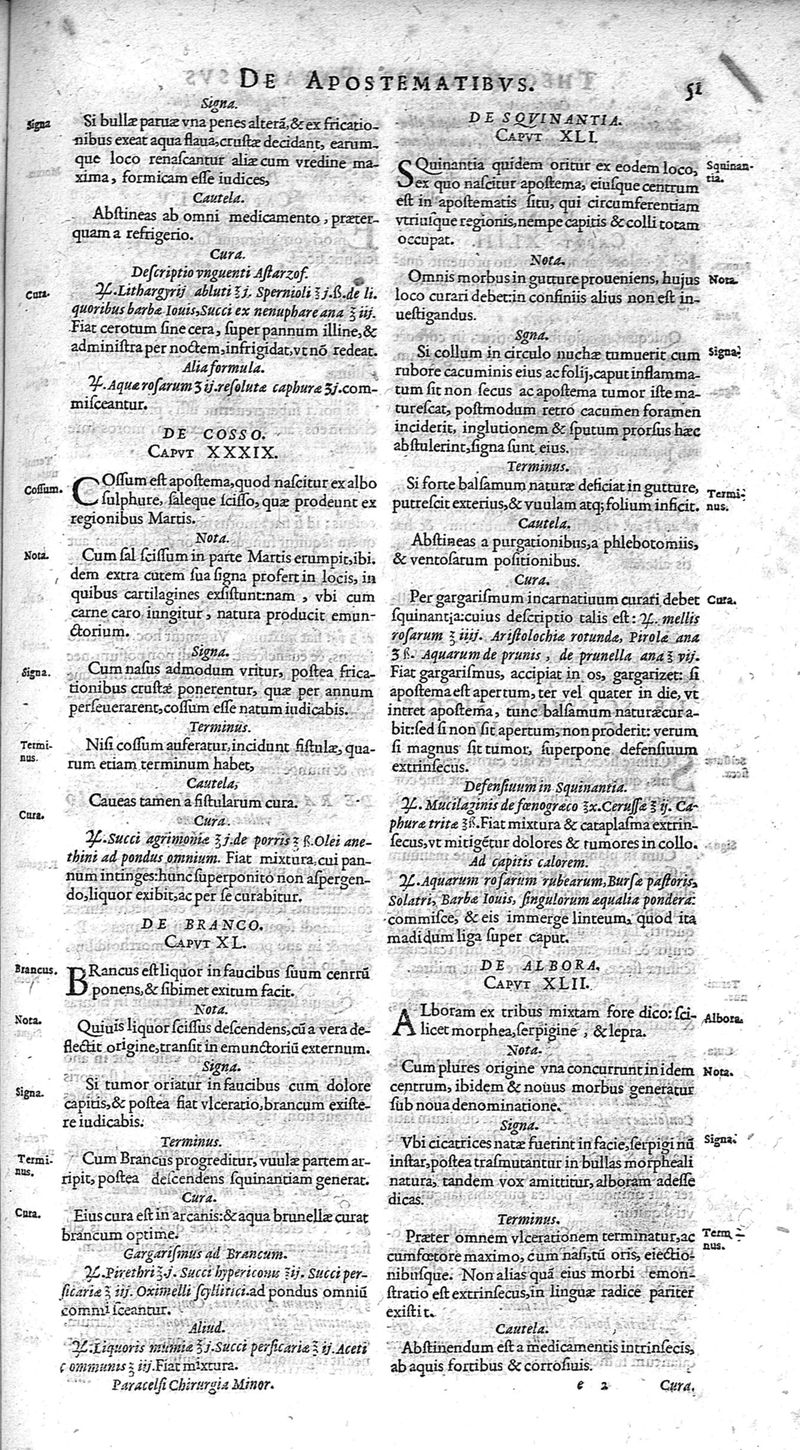 DE APOSTEMATIBVS.
51
Signa.
Signa
Si bullæ paruæ vna penes alterã,& ex fricatio-
nibus exeat aqua flaua,crustæ decidant, earum-
que loco renascantur aliæ cum vredine ma-
xima, formicam esse iudices,
Cautela.
Abstineas ab omni medicamento, præter-
quam a refrigerio.
Cura.
Descriptio vnguenti Astarzof.
Cura.
♃.Lithargyrij abluti ℥ j. Spernioli ℥ j.ß.de li.
quoribus barbæ Iouis,Succi ex nenuphare ana ℥ iij.
Fiat cerotum sine cera, super pannum illine,&
administra per noctem,infrigidat,vt nõ redeat.
Alia formula.
♃.Aquæ rosarum ʒ ij.resolutæ caphuræ ʒj.com-
misceantur.
DE COSSO.
CAPVT XXXIX.
Cossum.
COssum est apostema,quod nascitur ex albo
sulphure, saleque scisso, quæ prodeunt ex
regionibus Martis.
Nota.
Nota.
Cum sal scissum in parte Martis erumpit,ibi.
dem extra cutem sua signa profert in locis, in
quibus cartilagines existunt:nam , vbi cum
carne caro iungitur, natura producit emun-
ctorium.
Signa.
Signa.
Cum nasus admodum vritur, postea frica-
tionibus crustæ ponerentur, quæ per annum
perseuerarent,cossum esse natum iudicabis.
Terminus.
Termi-
nus.
Nisi cossum auferatur,incidunt fistulæ, qua-
rum etiam terminum habet,
Cautela,
Caueas tamen a fistularum cura.
Cura.
Cura.
♃.Succi agrimoniæ ℥ j.de porris ℥ ß.Olei ane-
thini ad pondus omnium. Fiat mixtura,cui pan-
num intinges:hunc superponito non aspergen-
do,liquor exibit,ac per se curabitur.
DE BRANCO.
CAPVT XL.
Brancus.
BRancus est liquor in faucibus suum centrũ
ponens,& sibimet exitum facit.
Nota.
Nota.
Quiuis liquor scissus descendens,cũ a vera de-
flectit origine,transit in emunctoriũ externum.
Signa.
Signa.
Si tumor oriatur in faucibus cum dolore
capitis,& postea fiat vlceratio,brancum existe-
re iudicabis.
Terminus.
Termi-
nus.
Cum Brancus progreditur, vuulæ partem ar-
ripit, postea descendens squinantiam generat.
Cura.
Cura.
Eius cura est in arcanis:& aqua brunellæ curat
brancum optime.
Gargarismus ad Brancum.
♃.Pirethri ʒ.j. Succi hypericonis ℥ij. Succi per-
sicariæ ℥ iij. Oximelli scyllitici.ad pondus omniũ
commisceantur.
Aliud.
♃.Liquoris mumiæ ℥ j. Succi persicariæ ℥ ij. Aceti
communis ℥ iij.Fiat mixtura.
Paracelsi Chirurgia Minor.
DE SQVINANTIA.
CAPVT XLI.
Squinan-
tia.
SQuinantia quidem oritur ex eodem loco,
ex quo nascitur apostema, eiusque centrum
est in apostematis situ, qui circumferentiam
vtriusque regionis,nempe capitis & colli totam
occupat.
Nota.
Nota.
Omnis morbus in gutture proueniens, hujus
loco curari debet:in confiniis alius non est in-
uestigandus.
Sgna.
Signa:
Si collum in circulo nuchæ tumuerit cum
rubore cacuminis eius ac folij,caput inflamma-
tum sit non secus ac apostema tumor iste ma-
turescat, postmodum retro cacumen foramen
inciderit, inglutionem & sputum prorsus hæc
abstulerint,signa sunt eius.
Terminus.
Termi-
nus.
Si forte balsamum naturæ deficiat in gutture,
putrescit exterius,& vuulam atq; folium inficit.
Cautela.
Abstineas a purgationibus,a phlebotomiis,
& ventosarum positionibus.
Cura.
Cura.
Per gargarismum incarnatiuum curari debet
squinantia:cuius descriptio talis est: ♃. mellis
rosarum ℥ iiij. Aristolochiæ rotundæ, Pirolæ ana
ʒ ß. Aquarum de prunis , de prunella ana ℥ vij.
Fiat gargarismus, accipiat in os, gargarizet: si
apostema est apertum, ter vel quater in die, vt
intret apostema, tunc balsamum naturæ cura-
bit:sed si non sit apertum, non proderit: verum
si magnus sit tumor, superpone defensiuum
extrinsecus.
Defensiuum in Squinantia.
♃. Mucilaginis de fœnogræco ℥x. Cerussæ ℥ ij. Ca-
phuræ tritæ ℥ß.Fiat mixtura & cataplasma extrin-
secus,vt mitigẽtur dolores & tumores in collo.
Ad capitis calorem.
♃.Aquarum rosarum rubearum,Bursæ pastoris,
Solatri, Barbæ Iouis, singulorum æqualia pondera:
commisce, & eis immerge linteum, quod ita
madidum liga super caput.
DE ALBORA.
CAPVT XLII.
Albora.
ALboram ex tribus mixtam fore dico: sci-
licet morphea,serpigine , & lepra.
Nota.
Nota.
Cum plures origine vna concurrunt in idem
centrum, ibidem & nouus morbus generatur
sub noua denominatione.
Signa.
Signa.
Vbi cicatrices natæ fuerint in facie,serpiginũ
instar,postea trãsmutantur in bullas morpheali
natura, tandem vox amittitur, alboram adesse
dicas.
Terminus.
Term -
nus.
Præter omnem vlcerationem terminatur,ac
cum fœtore maximo, cum nasi,tũ oris, eiectio-
nibusque. Non alias quã eius morbi emon-
stratio est extrinsecus,in linguæ radice pariter
existit.
Cautela.
Abstinendum est a medicamentis intrinsecis,
ab aquis fortibus & corrosiuis.
e 2
Cura.